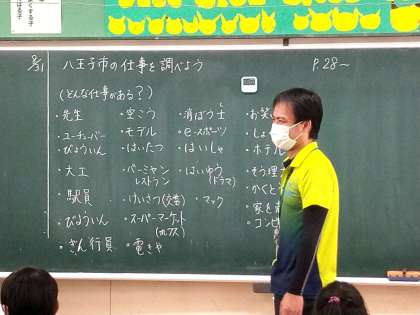 8/31 八王子市の仕事を調べよう P.28～
(どんな仕事がある?)
・先生 ・空こう ・消ぼう士 ・お笑
・ユーチューバー ・モデル ・eスポーツ ・しょ
・びょういん ・はいたつ ・はいしゃ ・ホテル
・大工 ・バーミヤン ・はいゆう ・そう理
レストラン (ドラマ) ・かくと
・駅員 ・けいさつ(交番) ・マック ・家を
・びょういん ・スーパーマーケット ・コンビ
(アルプス)
・ぎん行員 ・電きや